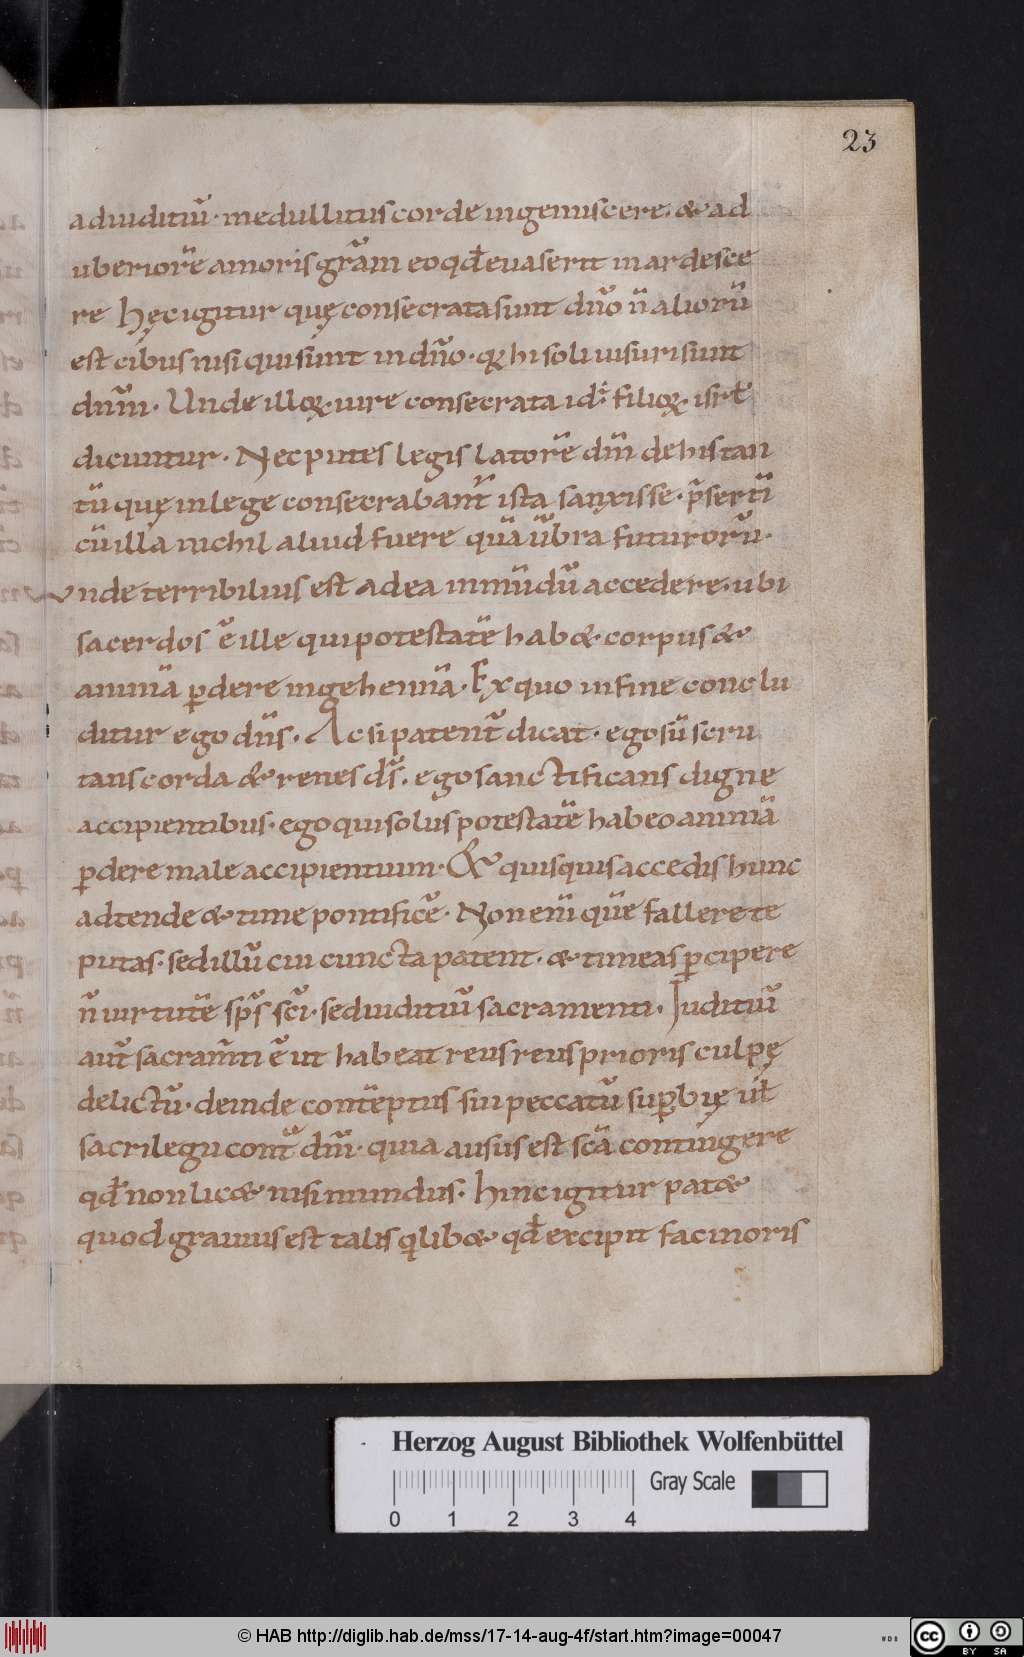 23
adiuditiū· medullitus corde ingemiscere· & ad
uberiorē amoris grām eo qđ euaserit inardesce
re hęc igitur quę consecrata sunt dn̄o n̄ aliorū
est cibus nisi qui sunt in dn̄o· qꝫ hi soli uisuri sunt
dnm̄· Unde illoꝝ iure consecrata id· filioꝝ· isrł
dicuntur· Nec putes legis latorē dm̄ de his tan
tū quę in lege consecrabant̄ ista sanxisse· p̄sertī
cū illa nichil aliud fuere quā ūbra futurorū·
Unde terribilius est ad ea inmūdū accedere· ubi
sacerdos ē ille qui potestatē hab& corpus &
animā ꝑdere in gehennā· Ex quo in fine conclu
ditur ego dn̄s· Ac si patent̄ dicat· ego sū scru
tans corda & renes ds̄· ego sanctificans digne
accipientibus· ego qui solus potestatē habeo animā
ꝑdere male accipientium· & quisquis accedis hunc
adtende & time pontificē· Non enī quē fallere te
putas· sed illū cui cuncta patent· & timeas ꝑcipere
n̄ uirtutē sps̄ scī· sed iuditiū sacramenti· Iuditiū
aut̄ sacram̄ti ē ut habeat reus reus prioris culpę
delictū· deinde contēptus siui peccatū suꝑbię uł
sacrilegii cont̄ dm̄· quia ausus est scā contingere
qđ non lic& nisi mundus· hinc igitur pat&
quod grauius est talis qlib& qđ excipit facinoris
Herzog August Bibliothek Wolfenbüttel
Gray Scale
0 1 2 3 4
© HAB http://diglib.hab.de/mss/17-14-aug-4f/start.htm?image=00047
WDB
cc BY SA